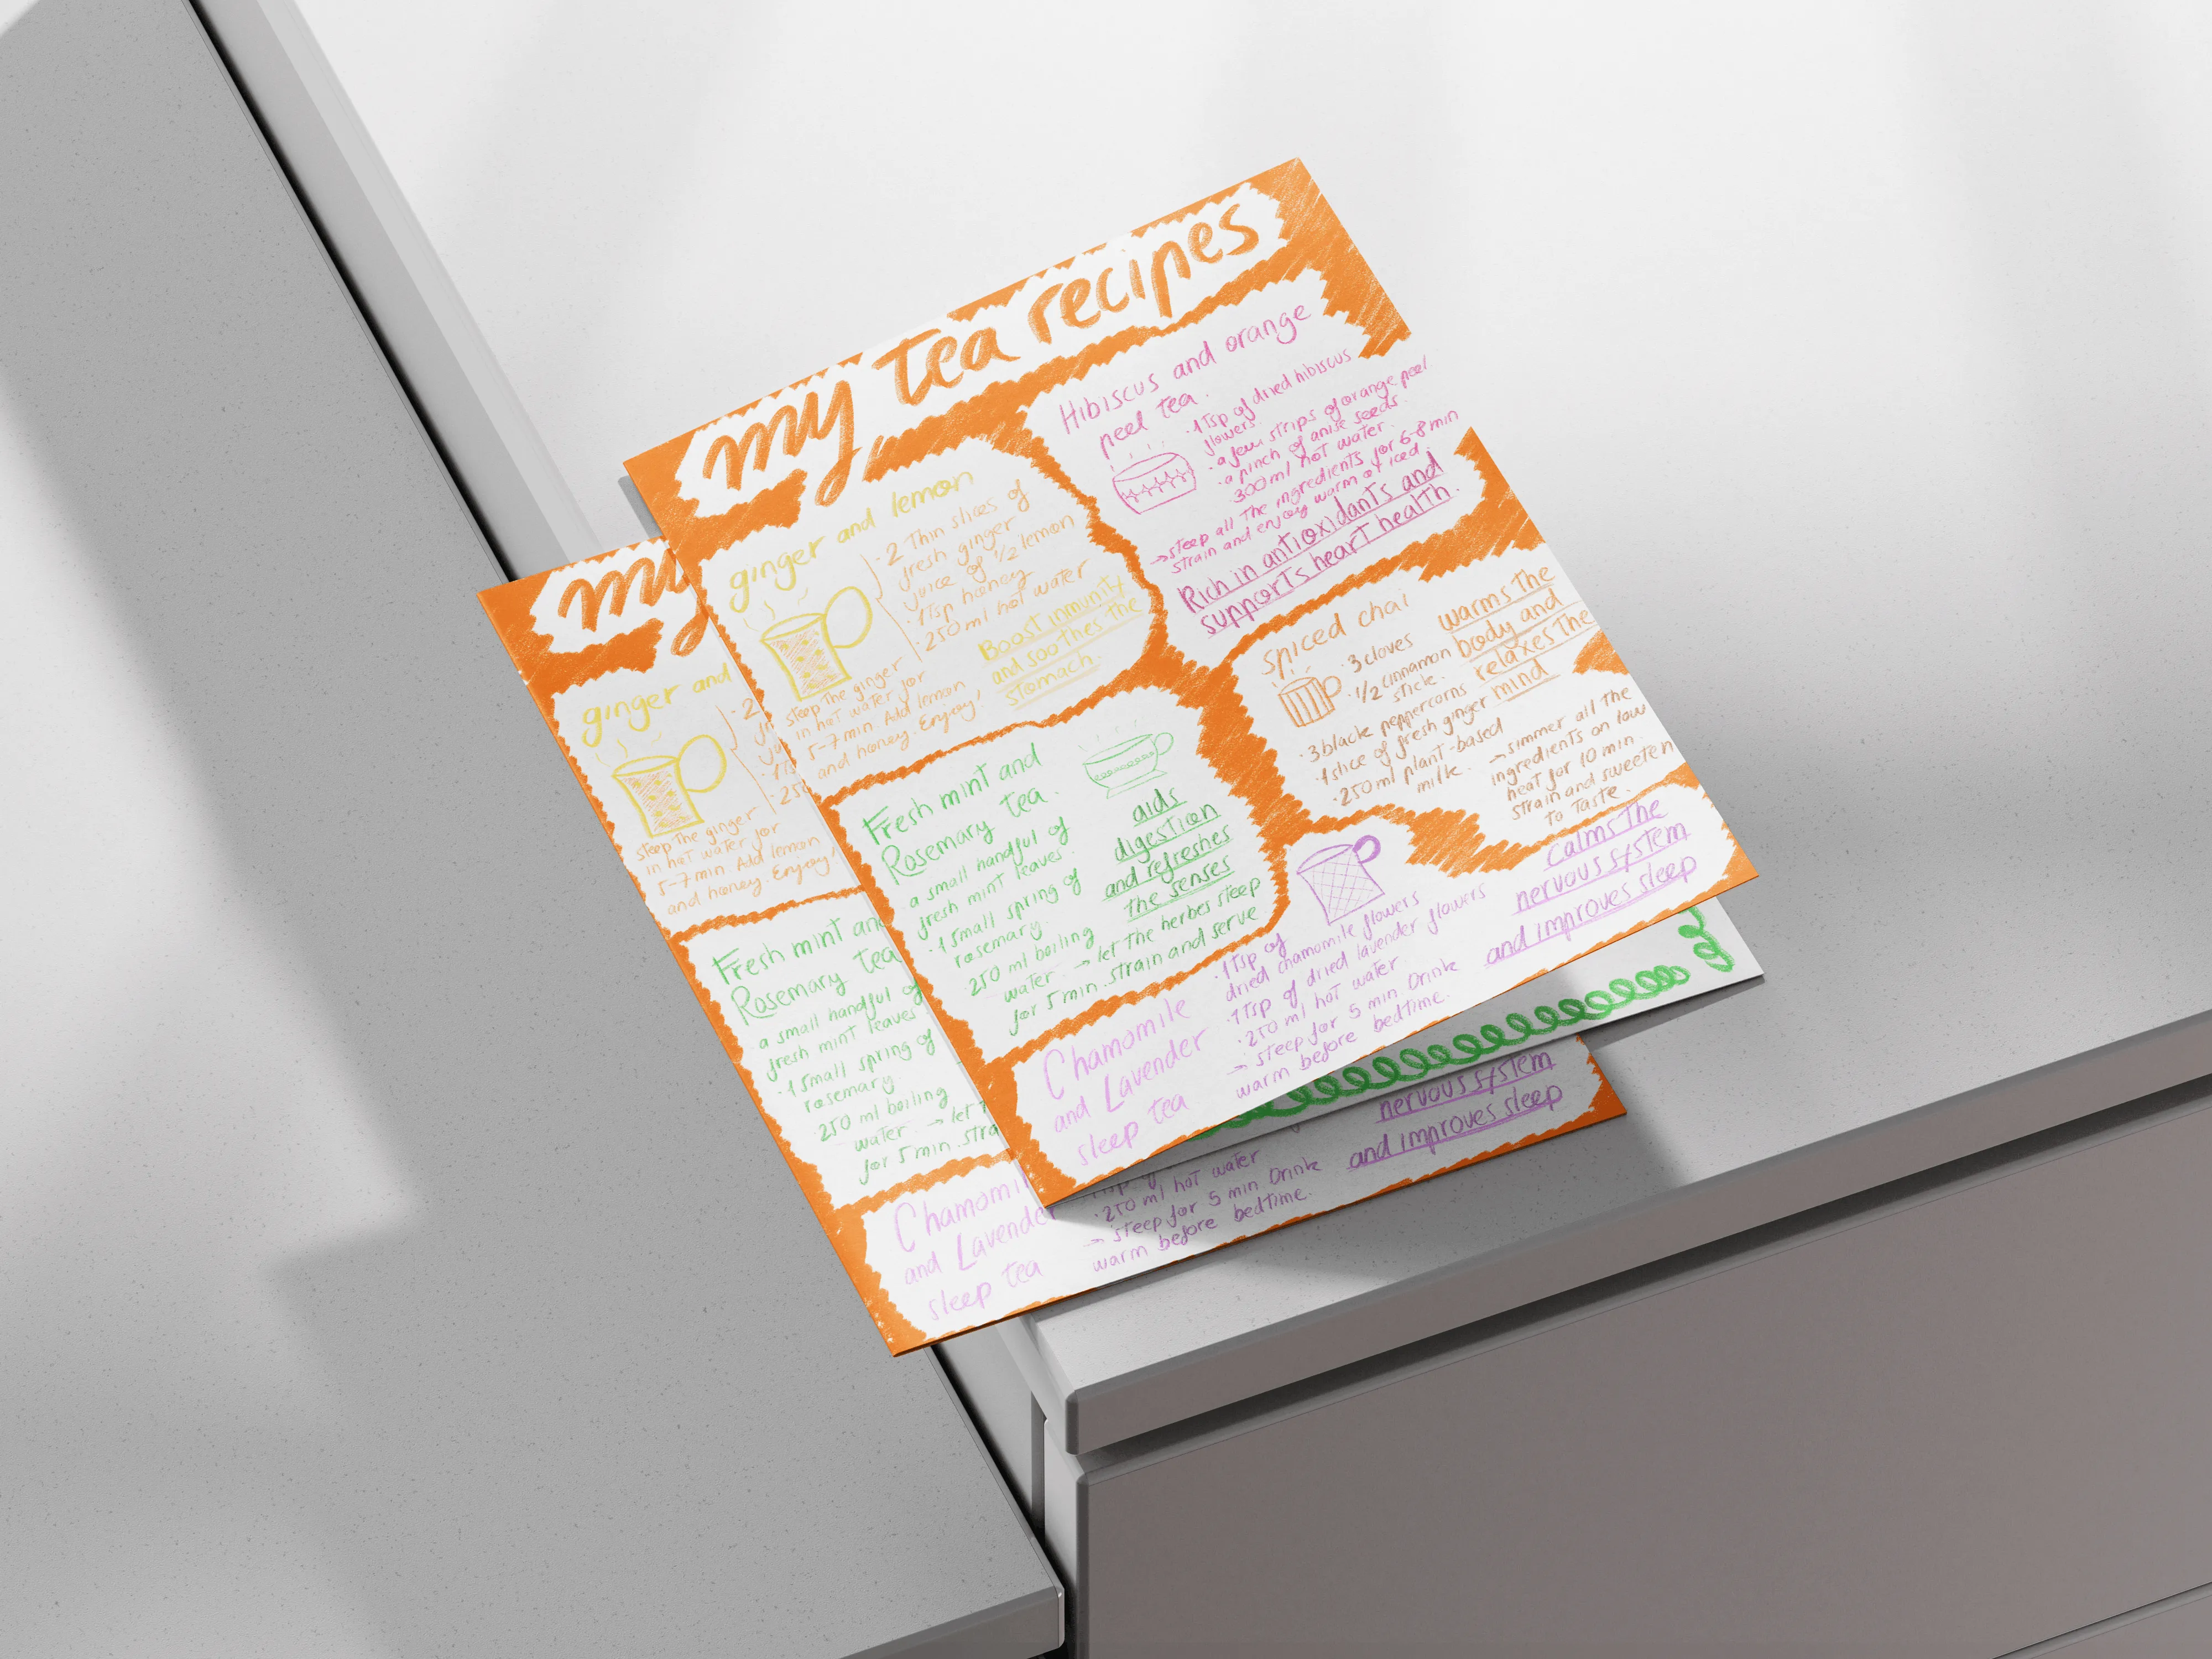 my tea recipes
ginger and lemon
· 2 Thin slices of
fresh ginger
juice of 1/2 lemon
· 1 Tsp honey
· 250 ml hot water
steep the ginger
in hot water for
5-7 min. Add lemon
and honey. Enjoy!
Boost inmunity
and soothes the
stomach
Hibiscus and orange
peel tea.
· 1 Tsp of dried hibiscus
flowers.
· a few strips of orange peel
· a pinch of anise seeds.
· 300 ml hot water.
→ steep all the ingredients for 6-8 min
strain and enjoy warm or iced
Rich in antioxidants and
supports heart health.
spiced chai
· 3 cloves
· 1/2 cinnamon
stick.
· 3 black peppercorns
· 1 slice of fresh ginger
· 250 ml plant-based
milk.
warms the
body and
relaxes the
mind
→ simmer all the
ingredients on low
heat for 10 min.
strain and sweeten
to taste.
Fresh mint and
Rosemary tea.
a small handful of
fresh mint leaves.
· 1 small spring of
rosemary.
250 ml boiling
water → let the herbes steep
for 5 min. strain and serve
aids
digestion
and refreshes
the senses
Chamomile
and Lavender
sleep tea
· 1 Tsp of
dried chamomile flowers
1 Tsp of dried lavender flowers
· 250 ml hot water.
→ steep for 5 min Drink
warm before bedtime.
calms the
nervous system
and improves sleep
my
ginger and
· 2
steep the ginger
in hot water for
5-7 min. Add lemon
and honey. Enjoy!
Fresh mint and
Rosemary tea
a small handful of
fresh mint leaves
· 1 small spring of
rosemary.
250 ml boiling
water → let
for 5 min. stra
Chamomil
and Lavender
sleep tea
· 250 ml hot water
→ steep for 5 min Drink
warm before bedtime.
nervous system
and improves sleep